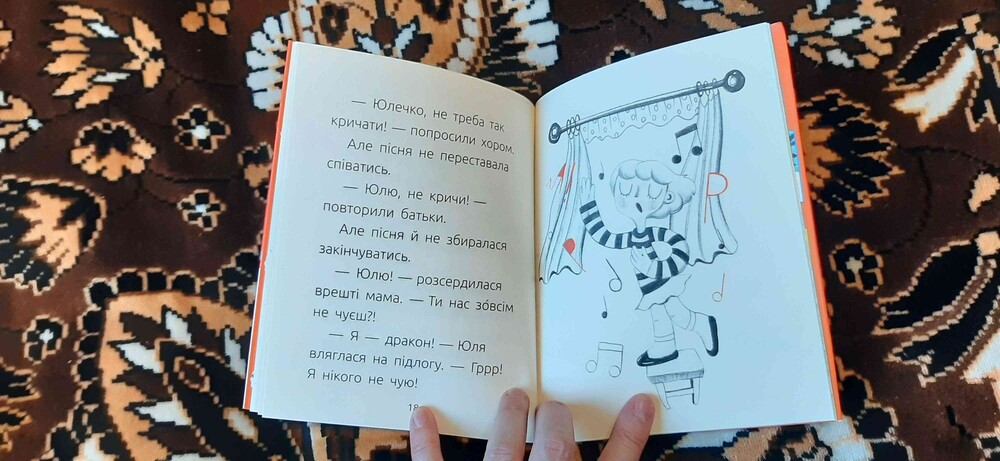 — Юлечко, не треба так
кричати! — попросили хором.
Але пісня не переставала
співатись.
— Юлю, не кричи! —
повторили батьки.
Але пісня й не збиралася
закінчуватись.
— Юлю! — розсердилася
врешті мама. — Ти нас зо́всім
не чуєш?!
— Я — дракон! — Юля
вляглася на підлогу. — Гррр!
Я нікого не чую!
18